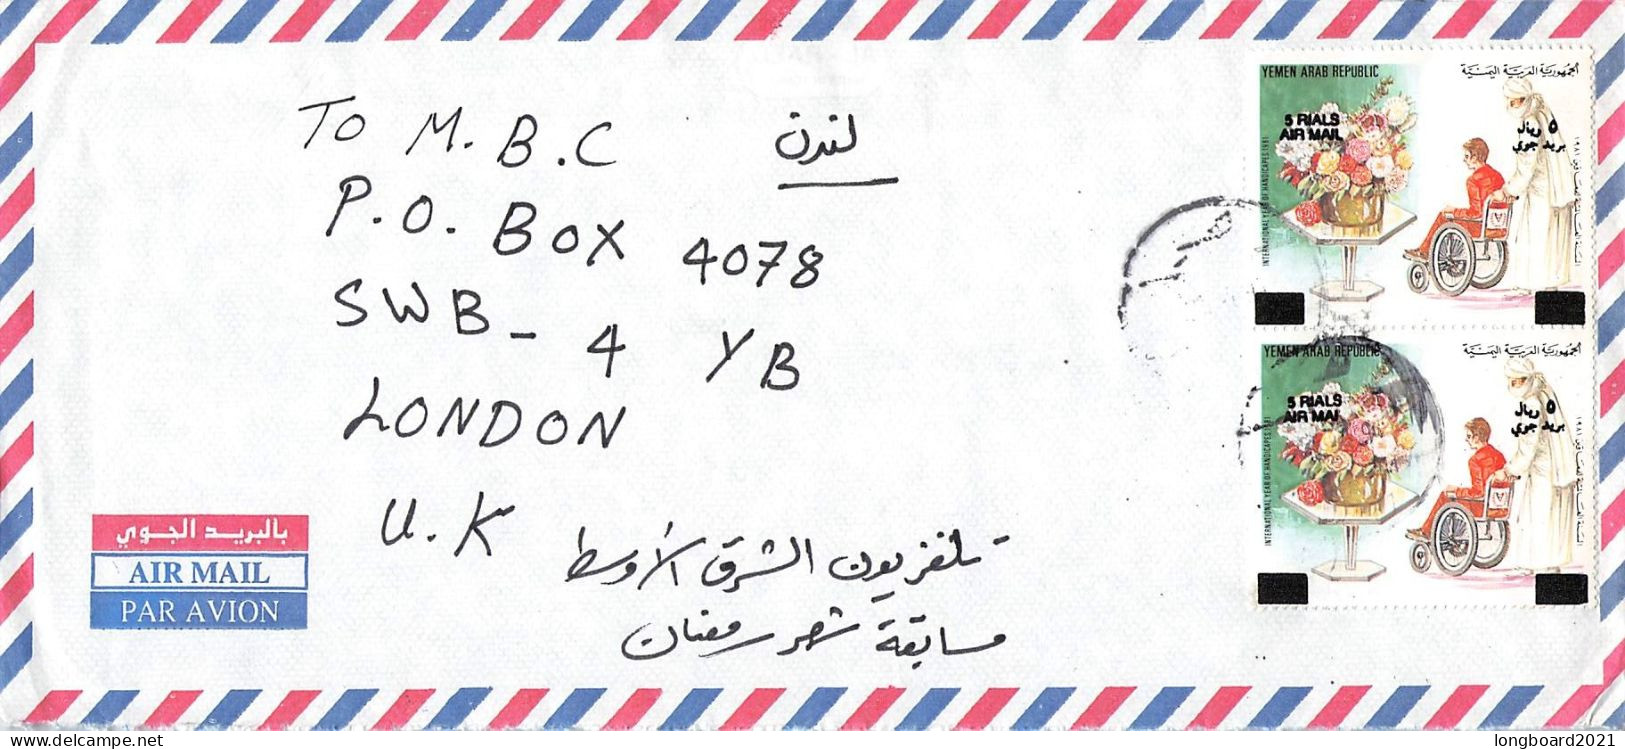 To M.B.C
لندن
P.O. BOX 4078
SWB-4 YB
LONDON
U.K
تلفزيون الشرق الأوسط
مسابقة شهر رمضان
بالبريد الجوي
AIR MAIL
PAR AVION
YEMEN ARAB REPUBLIC
الجمهورية العربية اليمنية
5 RIALS
AIR MAIL
٥ ريال
بريد جوي
INTERNATIONAL YEAR OF HANDICAPES 1981
١٩٨١
YEMEN ARAB REPUBLIC
الجمهورية العربية اليمنية
5 RIALS
AIR MAI
٥ ريال
بريد جوي
INTERNATIONAL YEAR OF HANDICAPES 1981
١٩٨١
delcampe.net
longboard2021